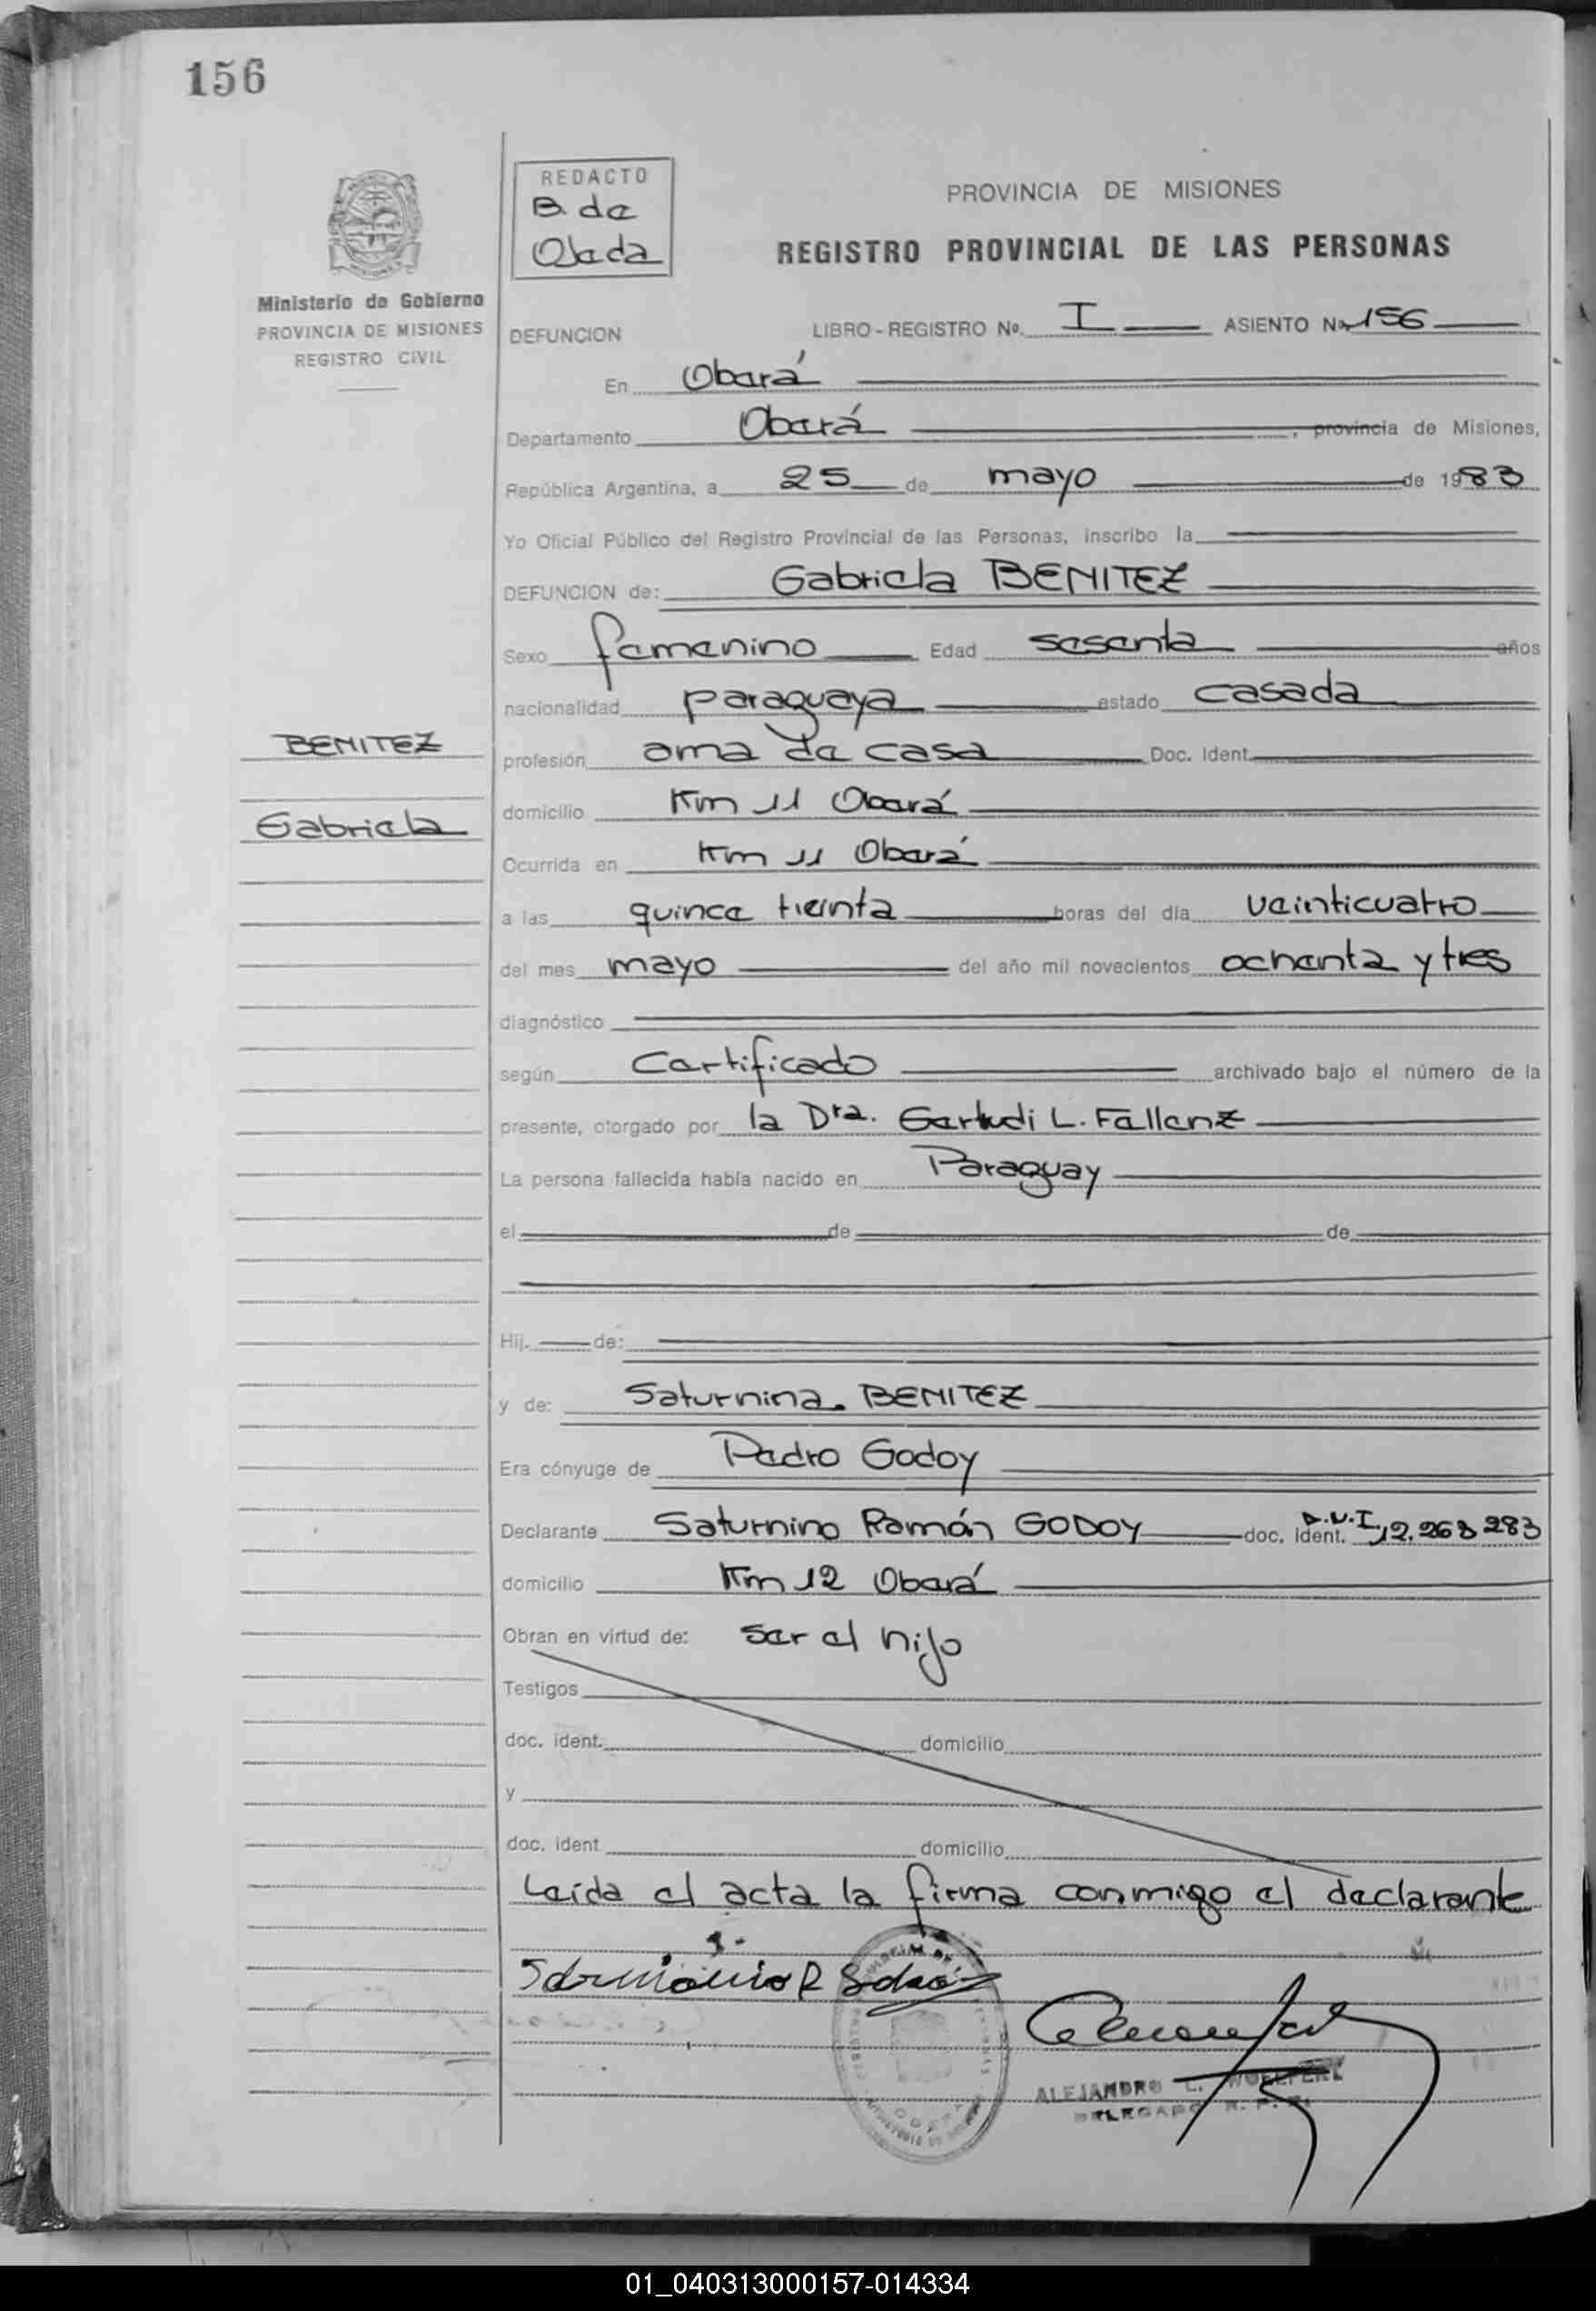 156
REDACTO
B. de
Ojeda
PROVINCIA DE MISIONES
REGISTRO PROVINCIAL DE LAS PERSONAS
Ministerio de Gobierno
PROVINCIA DE MISIONES
REGISTRO CIVIL
DEFUNCION LIBRO - REGISTRO No. I ASIENTO No. 156
En Oberá
Departamento Oberá, provincia de Misiones,
República Argentina, a 25 de mayo de 1983
Yo Oficial Público del Registro Provincial de las Personas, inscribo la
DEFUNCION de: Gabriela BENITEZ
Sexo femenino Edad sesenta años
nacionalidad paraguaya estado casada
BENITEZ
profesión ama de casa Doc. Ident.
domicilio Km 11 Oberá
Gabriela
Ocurrida en Km 11 Oberá
a las quince treinta horas del día veinticuatro
del mes mayo del año mil novecientos ochenta y tres
diagnóstico
según Certificado archivado bajo el número de la
presente, otorgado por la Dra. Gertudi L. Fallenz
La persona fallecida había nacido en Paraguay
el de de
Hij. de:
y de: Saturnina BENITEZ
Era cónyuge de Pedro Godoy
Declarante Saturnino Ramón GODOY doc. ident. D.N.I. 12.268 283
domicilio Km 12 Oberá
Obran en virtud de: ser el hijo
Testigos
doc. ident. domicilio
y
doc. ident domicilio
Leída el acta la firma conmigo el declarante
ALEJANDRO L.
DELEGADO R. P. P.
01_040313000157-014334